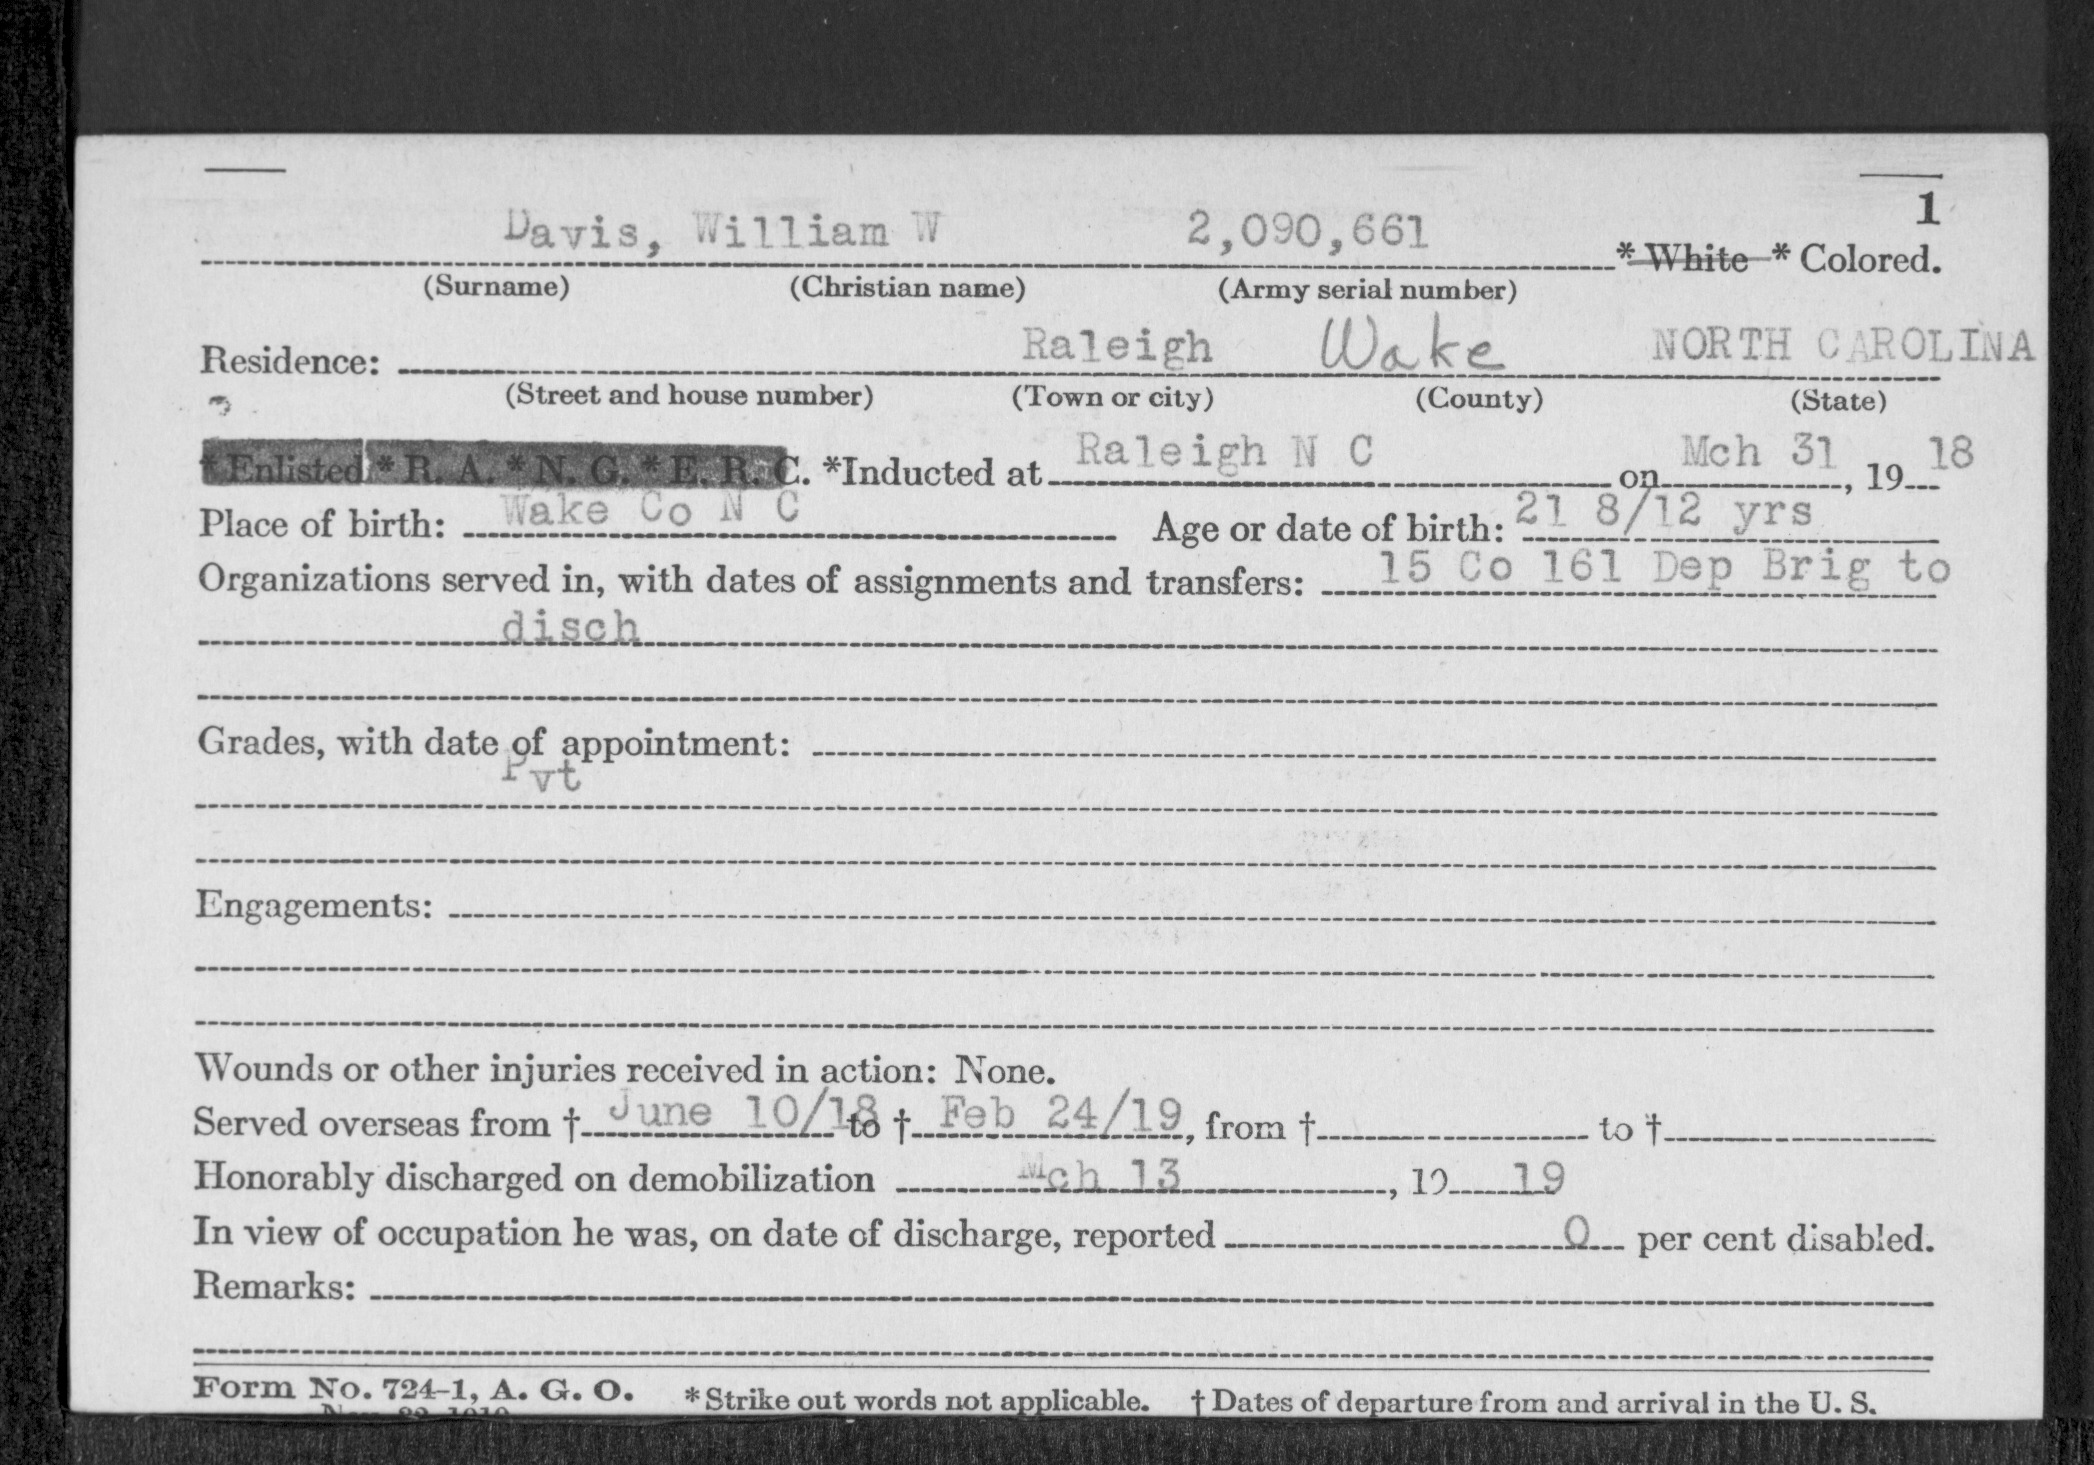 1
Davis, William W 2,090,661 * White * Colored.
(Surname) (Christian name) (Army serial number)
Residence: Raleigh Wake NORTH CAROLINA
(Street and house number) (Town or city) (County) (State)
* Enlisted * R. A. * N. G. * E. R. C. *Inducted at Raleigh N C on Mch 31, 19 18
Place of birth: Wake Co N C Age or date of birth: 21 8/12 yrs
Organizations served in, with dates of assignments and transfers: 15 Co 161 Dep Brig to
disch
Grades, with date of appointment:
Pvt
Engagements:
Wounds or other injuries received in action: None.
Served overseas from † June 10/18 to † Feb 24/19, from † to †
Honorably discharged on demobilization Mch 13, 19 19
In view of occupation he was, on date of discharge, reported 0 per cent disabled.
Remarks:
Form No. 724-1, A. G. O. * Strike out words not applicable. † Dates of departure from and arrival in the U. S.